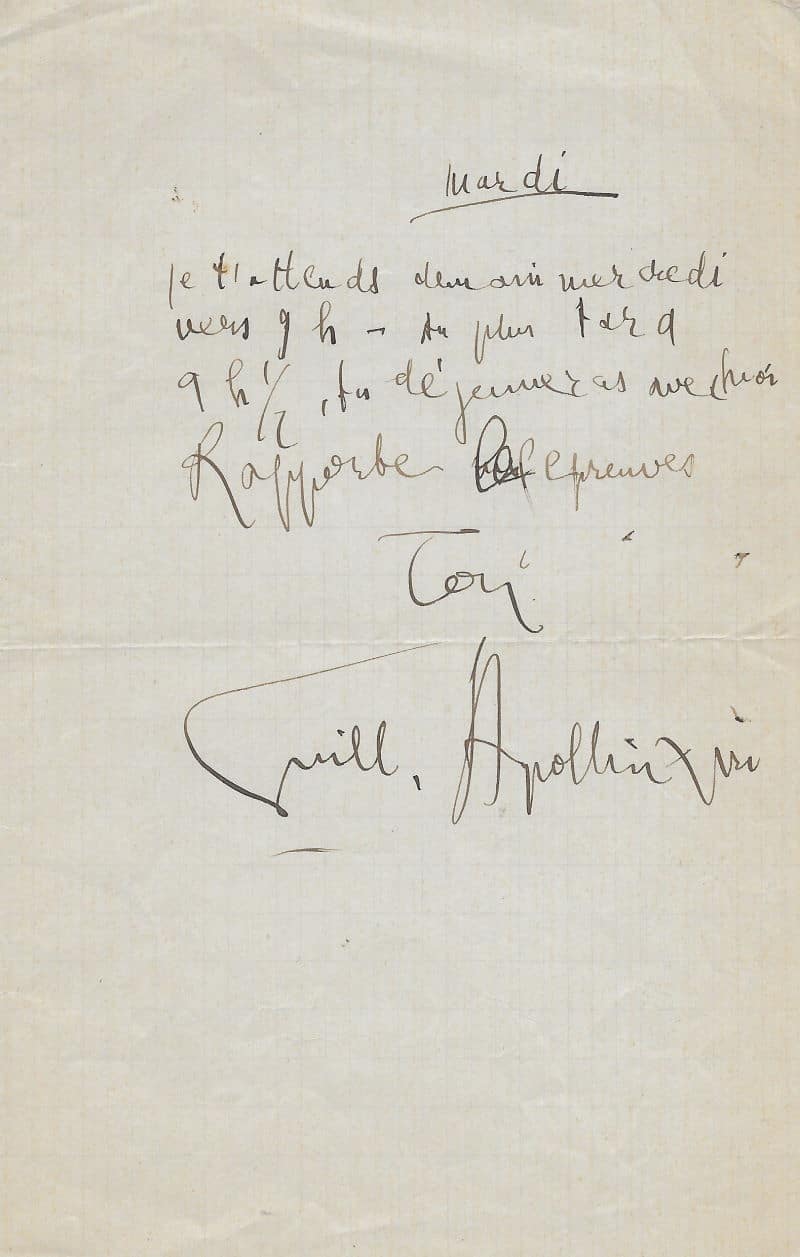 Mardi
je t'attends demain mercredi
vers 9 h – au plus tard
9 h 1/2, tu déjeuneras avec moi
Rapporte les épreuves
Ton
Guill. Apollinaire